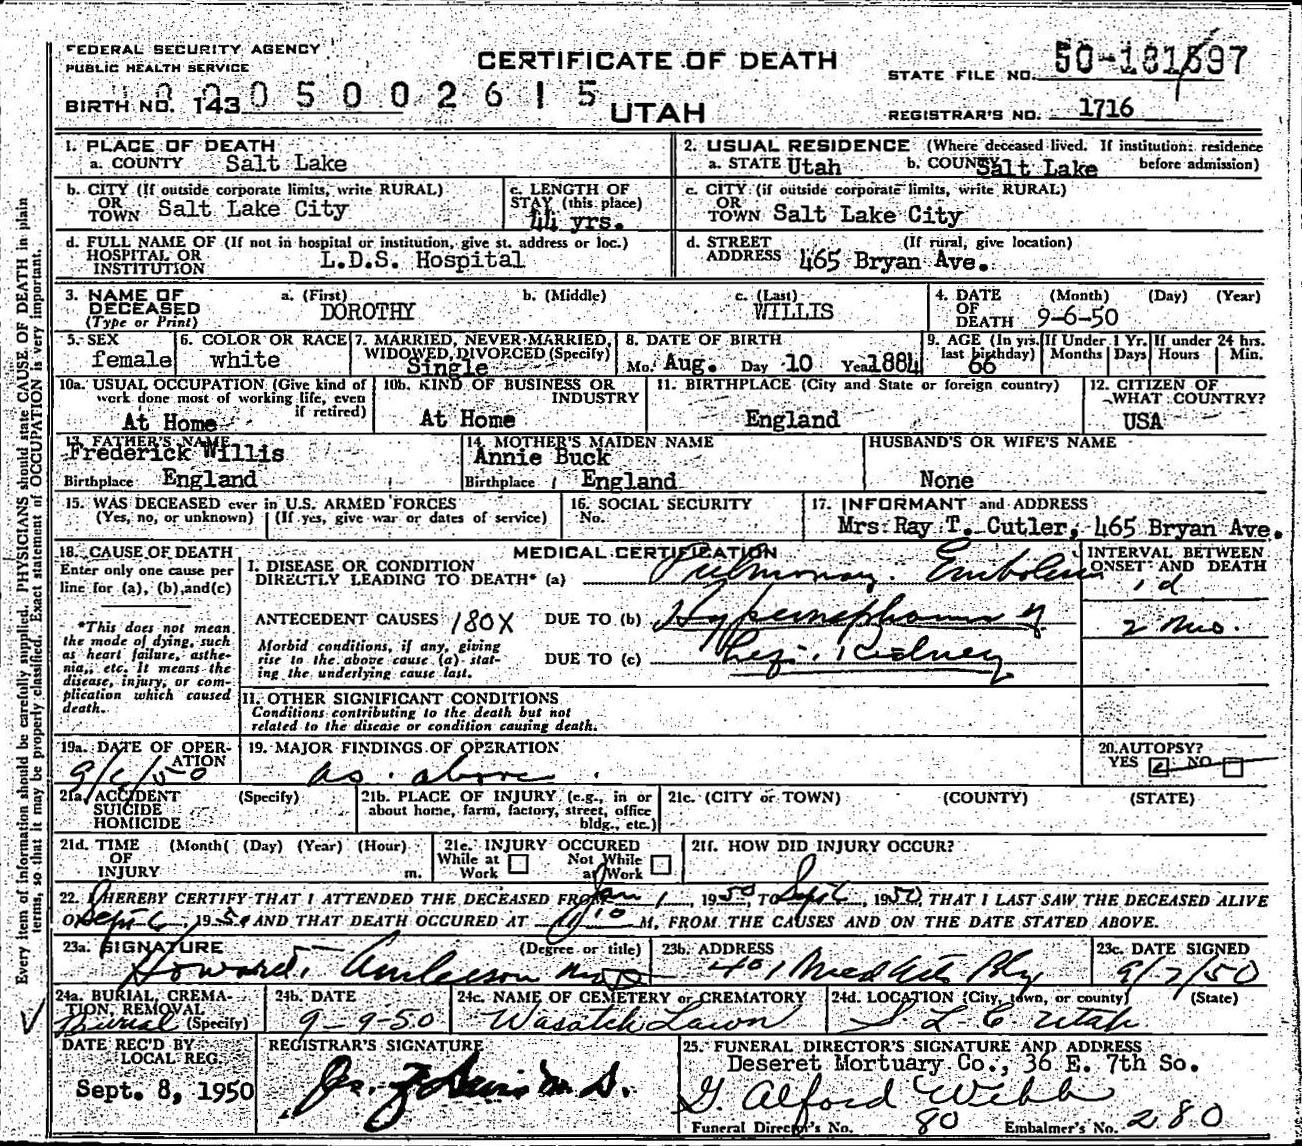 FEDERAL SECURITY AGENCY
PUBLIC HEALTH SERVICE
BIRTH NO. 143 0 0 5 0 0 2 6 1 5
CERTIFICATE OF DEATH
UTAH
STATE FILE NO. 50-181597
REGISTRAR'S NO. 1716
1. PLACE OF DEATH
a. COUNTY Salt Lake
2. USUAL RESIDENCE (Where deceased lived. If institution: residence
a. STATE Utah b. COUNTY Salt Lake before admission)
b. CITY (If outside corporate limits, write RURAL)
OR
TOWN Salt Lake City
c. LENGTH OF
STAY (this place)
44 yrs.
c. CITY (if outside corporate limits, write RURAL)
OR
TOWN Salt Lake City
d. FULL NAME OF (If not in hospital or institution, give st. address or loc.)
HOSPITAL OR
INSTITUTION L.D.S. Hospital
d. STREET (If rural, give location)
ADDRESS 465 Bryan Ave.
3. NAME OF
DECEASED
(Type or Print)
a. (First) b. (Middle) c. (Last)
DOROTHY WILLIS
4. DATE (Month) (Day) (Year)
OF
DEATH 9-6-50
5. SEX
female
6. COLOR OR RACE
white
7. MARRIED, NEVER MARRIED,
WIDOWED, DIVORCED (Specify)
Single
8. DATE OF BIRTH
Mo. Aug. Day 10 Year 1884
9. AGE (In yrs.
last birthday)
66
If Under 1 Yr.
Months Days
If under 24 hrs.
Hours Min.
10a. USUAL OCCUPATION (Give kind of
work done most of working life, even
if retired)
At Home
10b. KIND OF BUSINESS OR
INDUSTRY
At Home
11. BIRTHPLACE (City and State or foreign country)
England
12. CITIZEN OF
WHAT COUNTRY?
USA
13. FATHER'S NAME
Frederick Willis
Birthplace England
14. MOTHER'S MAIDEN NAME
Annie Buck
Birthplace England
HUSBAND'S OR WIFE'S NAME
None
15. WAS DECEASED ever in U.S. ARMED FORCES
(Yes, no, or unknown) (If yes, give war or dates of service)
16. SOCIAL SECURITY
No.
17. INFORMANT and ADDRESS
Mrs Ray T. Cutler, 465 Bryan Ave.
18. CAUSE OF DEATH
Enter only one cause per
line for (a), (b), and (c)
*This does not mean
the mode of dying, such
as heart failure, asthe-
nia, etc. It means the
disease, injury, or com-
plication which caused
death.
MEDICAL CERTIFICATION
I. DISEASE OR CONDITION
DIRECTLY LEADING TO DEATH* (a) Pulmonary Embolism
ANTECEDENT CAUSES 180X DUE TO (b) Hypernephroma of
Morbid conditions, if any, giving
rise to the above cause (a) stat-
ing the underlying cause last.
DUE TO (c) Kidney
INTERVAL BETWEEN
ONSET AND DEATH
1 d
2 mo.
II. OTHER SIGNIFICANT CONDITIONS
Conditions contributing to the death but not
related to the disease or condition causing death.
19a. DATE OF OPER-
ATION
9/6/50
19. MAJOR FINDINGS OF OPERATION
as above
20. AUTOPSY?
YES NO
21a. ACCIDENT (Specify)
SUICIDE
HOMICIDE
21b. PLACE OF INJURY (e.g., in or
about home, farm, factory, street, office
bldg., etc.)
21c. (CITY or TOWN) (COUNTY) (STATE)
21d. TIME (Month( (Day) (Year) (Hour)
OF
INJURY m.
21e. INJURY OCCURED
While at Not While
Work at Work
21f. HOW DID INJURY OCCUR?
22. I HEREBY CERTIFY THAT I ATTENDED THE DECEASED FROM Jan 1, 1950, TO Sept 6, 1950, THAT I LAST SAW THE DECEASED ALIVE
ON Sept 6, 1950 AND THAT DEATH OCCURED AT M, FROM THE CAUSES AND ON THE DATE STATED ABOVE.
23a. SIGNATURE (Degree or title)
Howard Anderson MD
23b. ADDRESS
401 Med Arts Bldg
23c. DATE SIGNED
9/7/50
24a. BURIAL, CREMA-
TION, REMOVAL
Burial (Specify)
24b. DATE
9-9-50
24c. NAME OF CEMETERY or CREMATORY
Wasatch Lawn
24d. LOCATION (City, town, or county) (State)
S L C Utah
DATE REC'D BY
LOCAL REG.
Sept. 8, 1950
REGISTRAR'S SIGNATURE
25. FUNERAL DIRECTOR'S SIGNATURE AND ADDRESS
Deseret Mortuary Co., 36 E. 7th So.
G. Alford Webb
Funeral Director's No. 80 Embalmer's No. 280
Every item of information should be carefully supplied. PHYSICIANS should state CAUSE OF DEATH in plain
terms, so that it may be properly classified. Exact statement of OCCUPATION is very important.